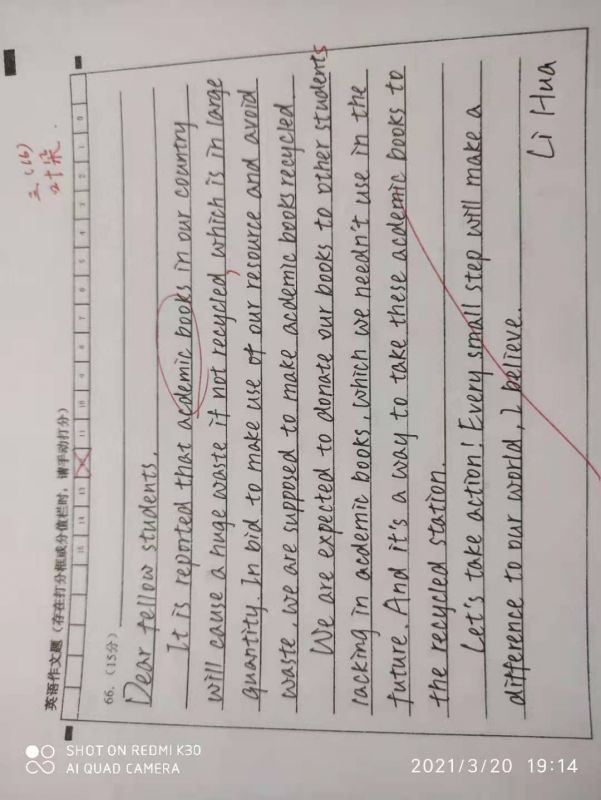 英语作文题(存在打分框或分值栏时，请手动打分)
15 14 13 12 11 10 9 8 7 6 5 4 3 2 1 0
66. (15分)
Dear fellow students,
It is reported that acdemic books in our country
will cause a huge waste if not recycled, which is in large
quantity. In bid to make use of our resource and avoid
waste, we are supposed to make acdemic books recycled
We are expected to donate our books to other students
lacking in acdemic books, which we needn't use in the
future. And it's a way to take these acdemic books to
the recycled station.
Let's take action! Every small step will make a
difference to our world, I believe.
Li Hua
SHOT ON REDMI K30
AI QUAD CAMERA
2021/3/20 19:14